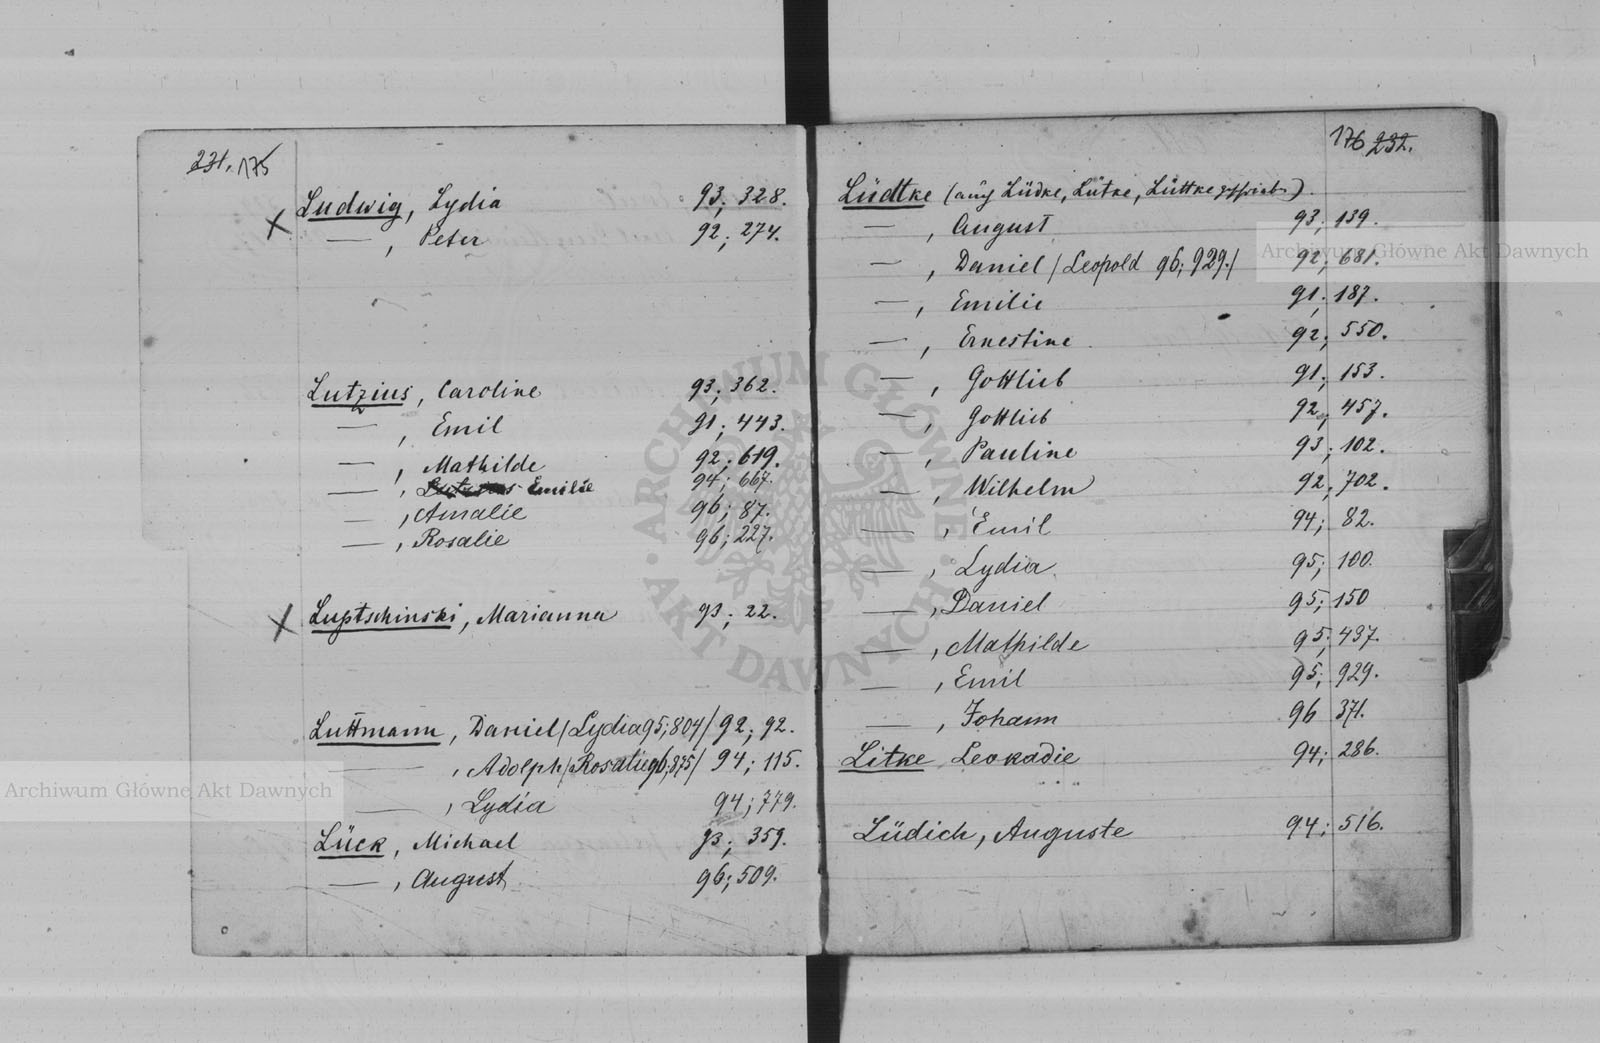 231. 175
Ludwig, Lydia 93; 328.
— , Peter 92; 274.
Lutzius, Caroline 93; 362.
— , Emil 91; 443.
— , Mathilde 92; 619.
— , Emilie 94; 667.
— , Amalie 96; 87.
— , Rosalie 96; 227.
Luptschinski, Marianna 93; 22.
Luttmann, Daniel /Lydia 95; 804/ 92; 92.
— , Adolph /Rosalie 96; 875/ 94; 115.
— , Lydia 94; 779.
Lück, Michael 93; 359.
— , August 96; 509.
176 232.
Lüdtke (auch Lüdke, Lütke, Lüttke geschrieb.)
— , August 93; 139.
— , Daniel /Leopold 96; 929./ 92; 681.
— , Emilie 91; 187.
— , Ernestine 92; 550.
— , Gottlieb 91; 153.
— , Gottlieb 92; 457.
— , Pauline 93; 102.
— , Wilhelm 92; 702.
— , Emil 94; 82.
— , Lydia 95; 100.
— , Daniel 95; 150
— , Mathilde 95; 437.
— , Emil 95; 929.
— , Johann 96 371.
Litke Leokadie 94; 286.
Lüdich, Auguste 94; 516.
Archiwum Główne Akt Dawnych
Archiwum Główne Akt Dawnych
ARCHIWUM GŁÓWNE AKT DAWNYCH